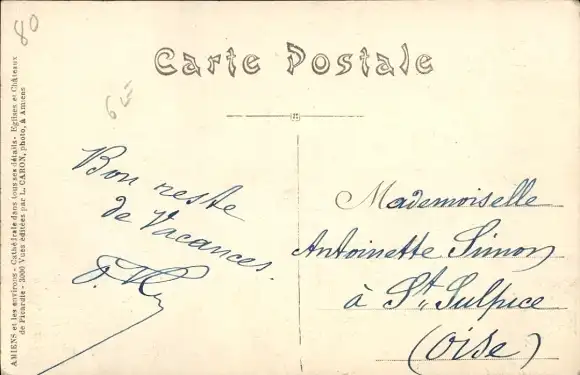 80
Carte Postale
6
Bon reste
de Vacances.
Mademoiselle
Antoinette Simon
à St Sulpice
(Oise)
AMIENS et les environs - Cathédrale dans tous ses détails - Eglises et Châteaux
de Picardie - 3000 Vues éditées par L. CARON, photo, à Amiens